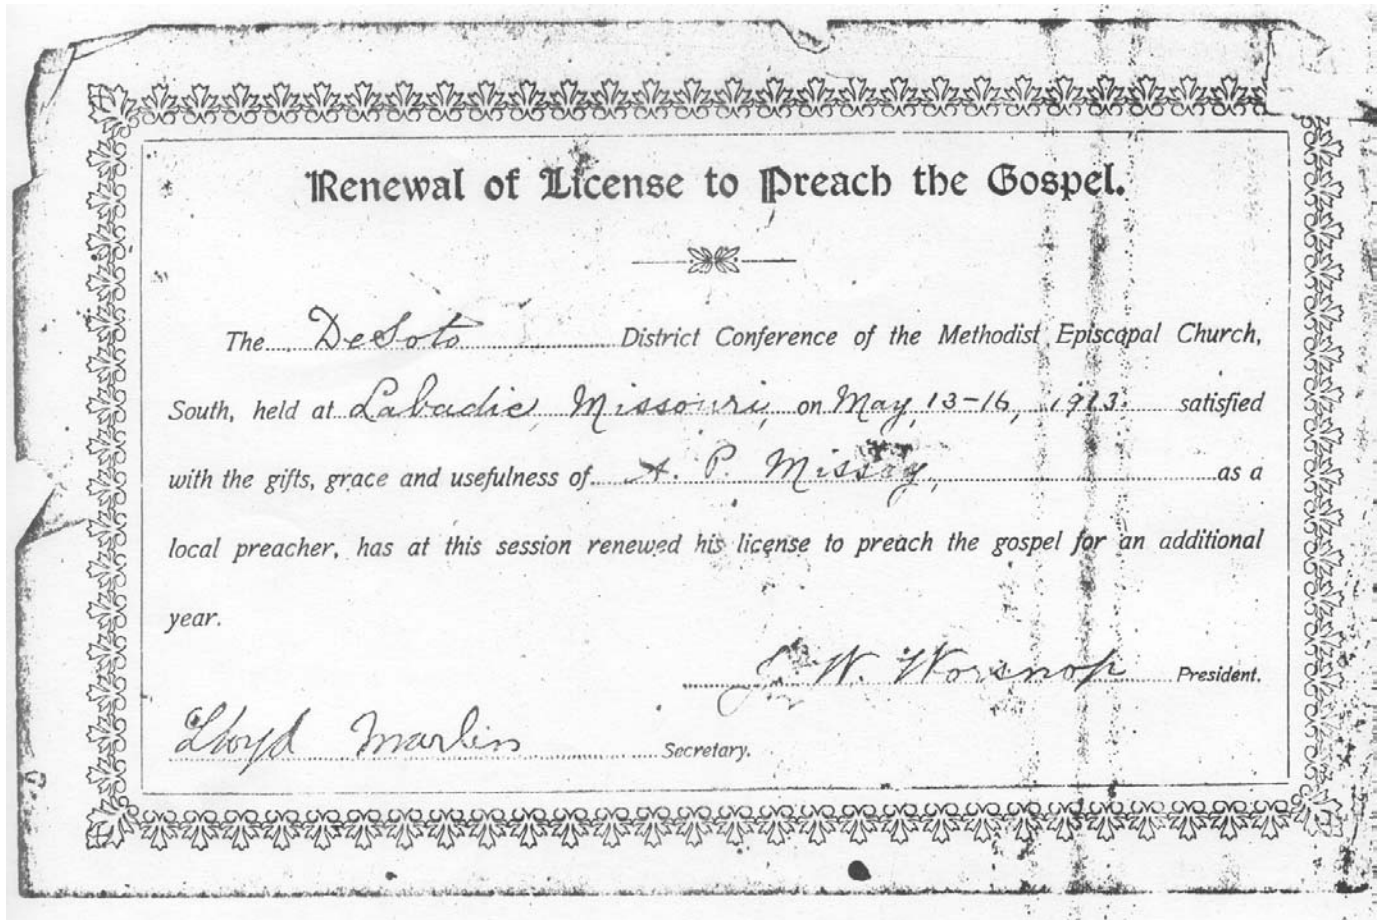 Renewal of License to Preach the Gospel.
The DeSoto District Conference of the Methodist Episcopal Church,
South, held at Labadie, Missouri, on May, 13-16, 1913. satisfied
with the gifts, grace and usefulness of A. P. Missey, as a
local preacher, has at this session renewed his license to preach the gospel for an additional
year.
J. W. Worsnop President.
Lloyd Marlin Secretary.